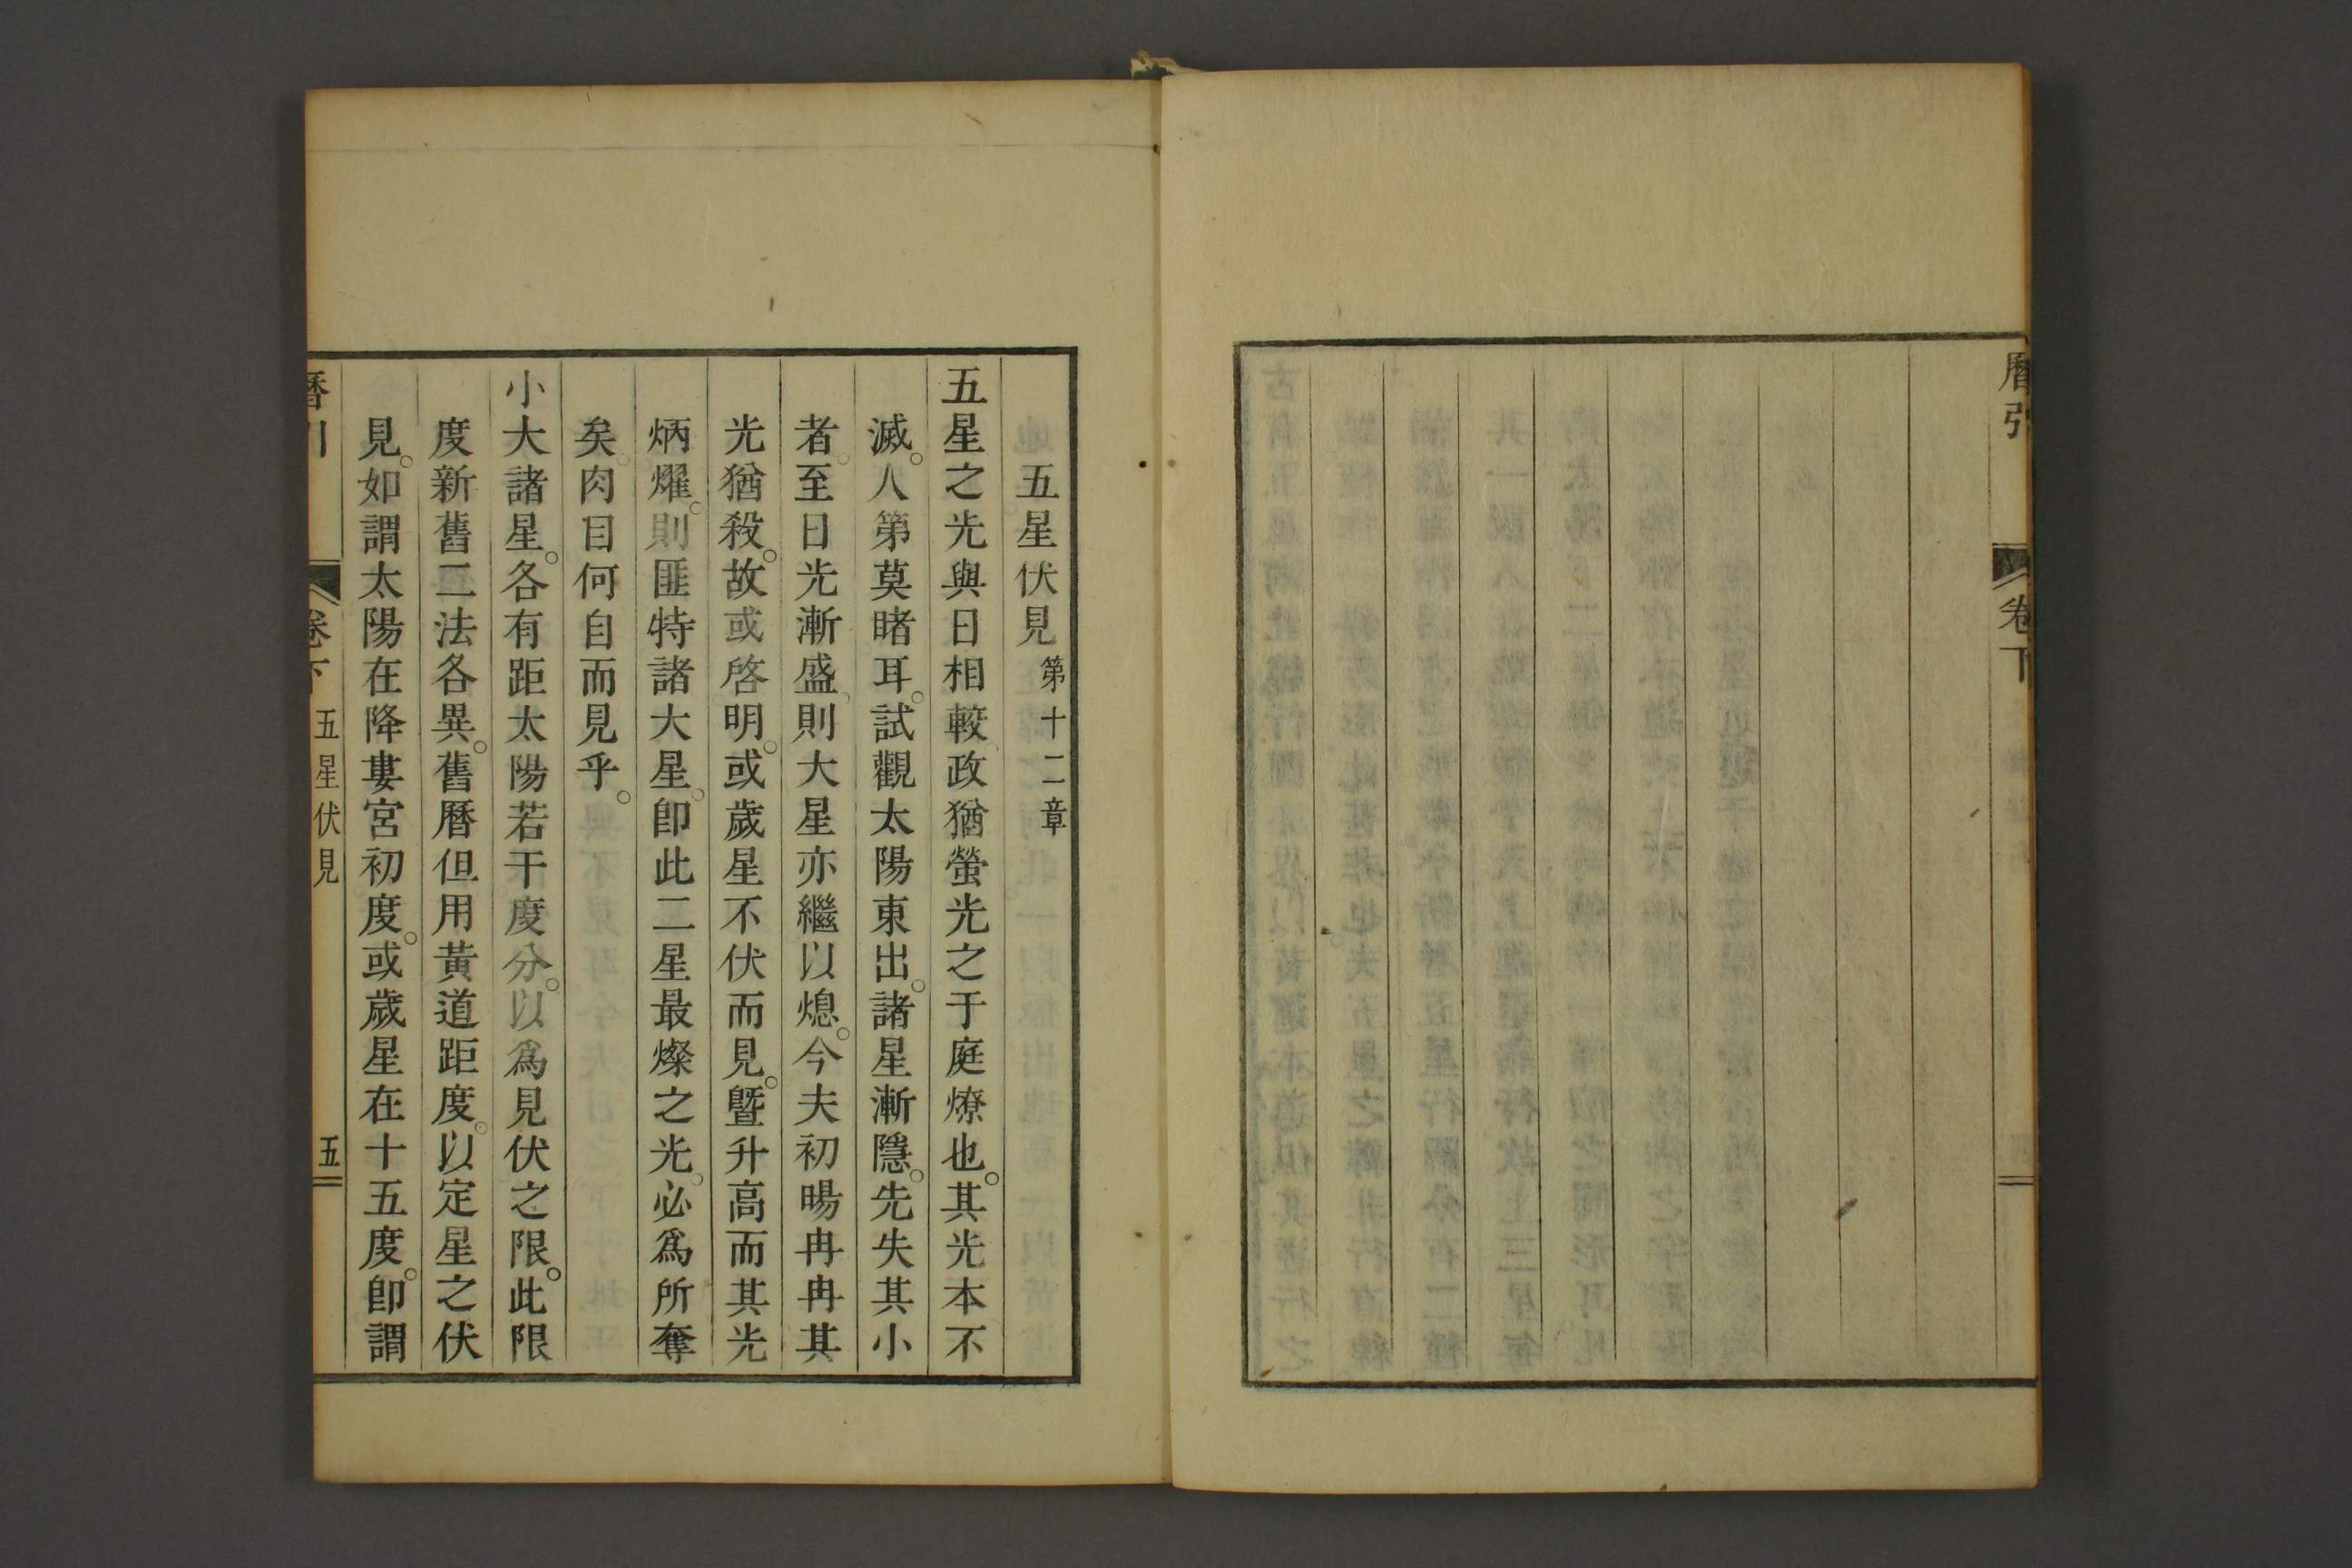 曆引
卷下
五星伏見第十二章
五星之光與日相較政猶螢光之于庭燎也。其光本不
滅。人第莫睹耳。試觀太陽東出。諸星漸隱。先失其小
者。至日光漸盛、則大星亦繼以熄。今夫初暘冉冉其
光猶殺。故或啓明。或歲星不伏而見。曁升高而其光
炳燿。則匪特諸大星。卽此二星最燦之光。必爲所奪
矣。肉目何自而見乎。
小大諸星。各有距太陽若干度分。以爲見伏之限。此限
度新舊二法各異。舊曆但用黃道距度。以定星之伏
見。如謂太陽在降婁宮初度。或歲星在十五度。卽謂
曆引
卷下
五星伏見
五